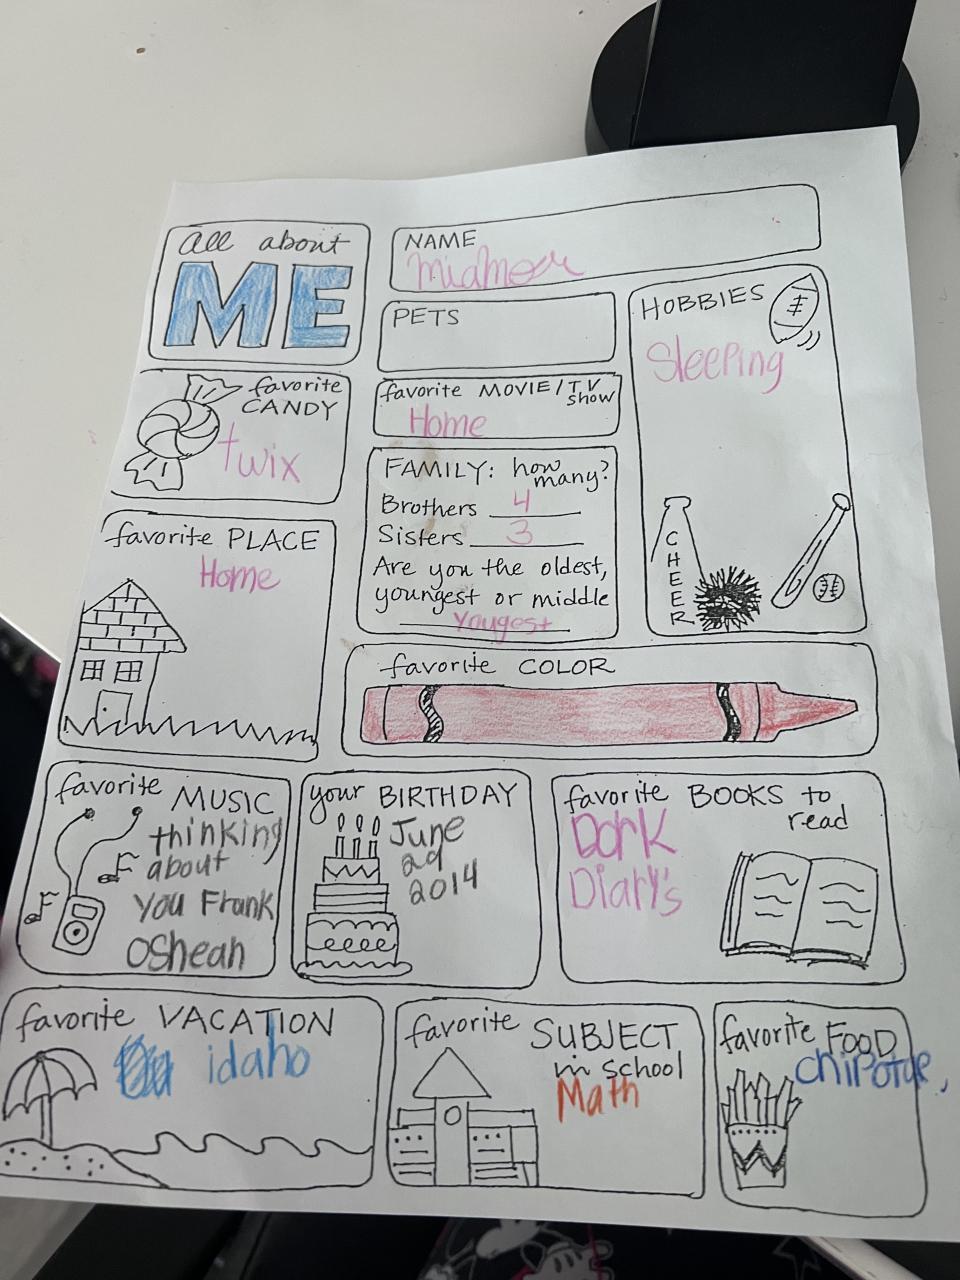 all about
ME
NAME
miamor
PETS
HOBBIES
Sleeping
CHEER
favorite
CANDY
twix
favorite MOVIE/TV
show
Home
FAMILY: how
many?
Brothers 4
Sisters 3
Are you the oldest,
youngest or middle
Yougest
favorite PLACE
Home
favorite COLOR
favorite MUSIC
thinking
about
you Frank
Oshean
your BIRTHDAY
June
2d
2014
favorite BOOKS to
read
Dork
Diary's
favorite VACATION
idaho
favorite SUBJECT
in school
Math
favorite FOOD